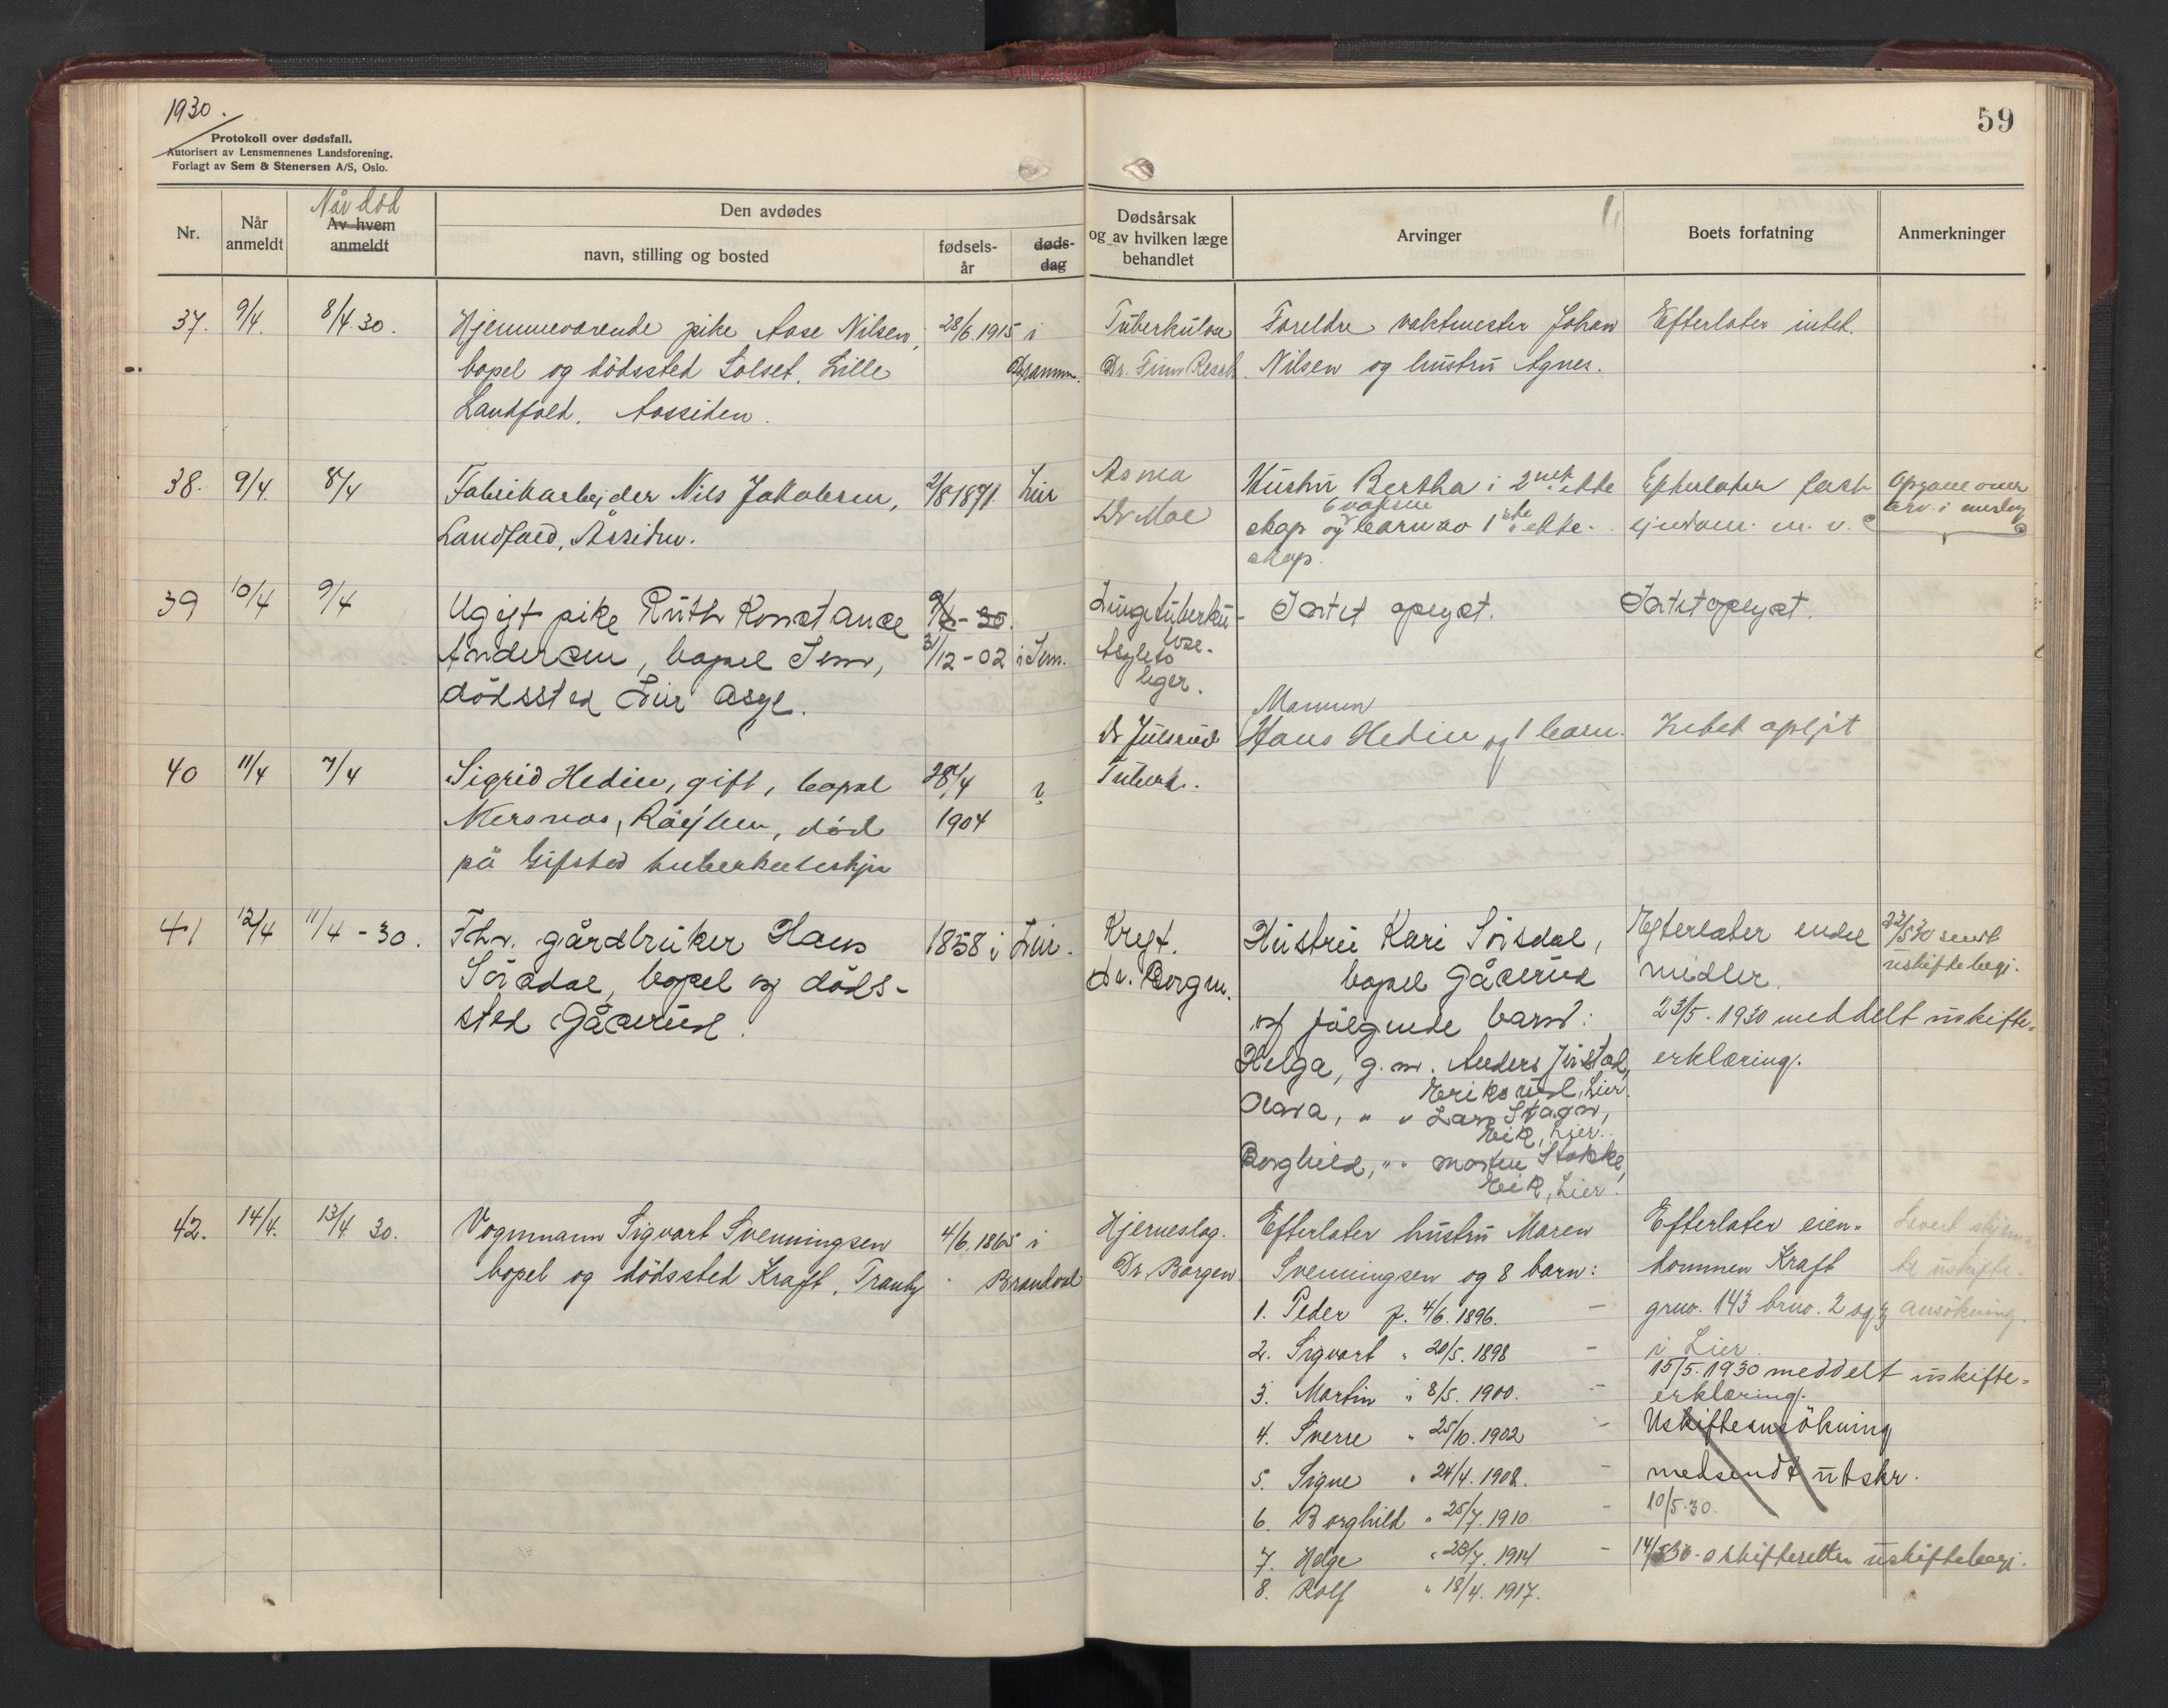 1930.
Protokoll over dødsfall.
Autorisert av Lensmennenes Landsforening.
Forlagt av Sem & Stenersen A/S, Oslo.
59
Nr.
Når anmeldt
Når död
Av hvem anmeldt
Den avdødes
navn, stilling og bosted
fødsels-år
døds-dag
Dødsårsak og av hvilken læge behandlet
Arvinger
Boets forfatning
Anmerkninger
37. 9/4. 8/4.30. Hjemmeværende pike Aase Nilsen, 28/6.1915 i Tuberkulose Foreldre vaktmester Johan Efterlater intet.
bopel og dödssted Solset, Lille Drammen. Dr. Finn Resch. Nilsen og hustru Agnes.
Landfald, Aassiden.
38. 9/4 8/4 Fabrikarbeider Nils Jakobsen, 2/8 1871 Lier Asma Hustru Bertha i 2net ekte Efterlater fast Opgave over
Landfald, Åssiden. Dr Moe skap og 6 voksne barn av 1ste ekte- eiendom m. v. arv i
skap.
39 10/4 9/4 Ugift pike Ruth Konstance 9/4-30. Lungetuberku- Intet oplyst. Intet oplyst.
Andersen, bopel Sem, 31/12-02 i Sem. lose.
dödssted Lier asyl. Asylets leger.
40 11/4 7/4 Sigrid Hedin, gift, bopel 28/4 ? Dr Julsrud Mannen
Hans Hedin og 1 barn. Intet oplyst
Nersnes, Röyken, död 1904 Tuberk.
på Gifstad tuberkulosehjem
41 12/4 11/4-30. Fhv. gårdbruker Hans 1858 i Lier. Kreft. Hustru Kari Sörsdal, Efterlater endel 22/5 30 sendt
Sörsdal, bopel og döds- Dr. Borgen. bopel Gåserud midler. uskiftebegj.
sted Gåserud. og fölgende barn: 23/5.1930 meddelt uskifte-
Helga, g. m. Anders Justad, erklæring.
Eriksrud, Lier.
Olava, " " Lars
Eik, Lier.
Borghild, " " Morten Stokke,
Eik, Lier.
42. 14/4. 13/4 30. Vognmann Sigvart Svenningsen 4/6.1865 i Hjerneslag. Efterlater hustru Maren Efterlater eien-
bopel og dödssted Kraft, Tranby Brandval Dr. Borgen Svenningsen og 8 barn: dommen Kraft
1. Peder f. 4/6.1896. - grno. 143 brno. 2 og 3 ansökning.
2. Sigvart " 20/5.1898 - i Lier
15/5.1930 meddelt uskifte-
3. Martin " 8/5.1900. - erklæring.
4. Sverre " 25/10.1902 - Uskifteansökning
5. Signe " 24/4.1908. - medsendt utskr.
6. Borghild " 25/7.1910 - 10/5.30.
7. Helge " 23/7.1914 - 14/5 30. skifteretten uskiftebegj.
8. Rolf " 18/4.1917.